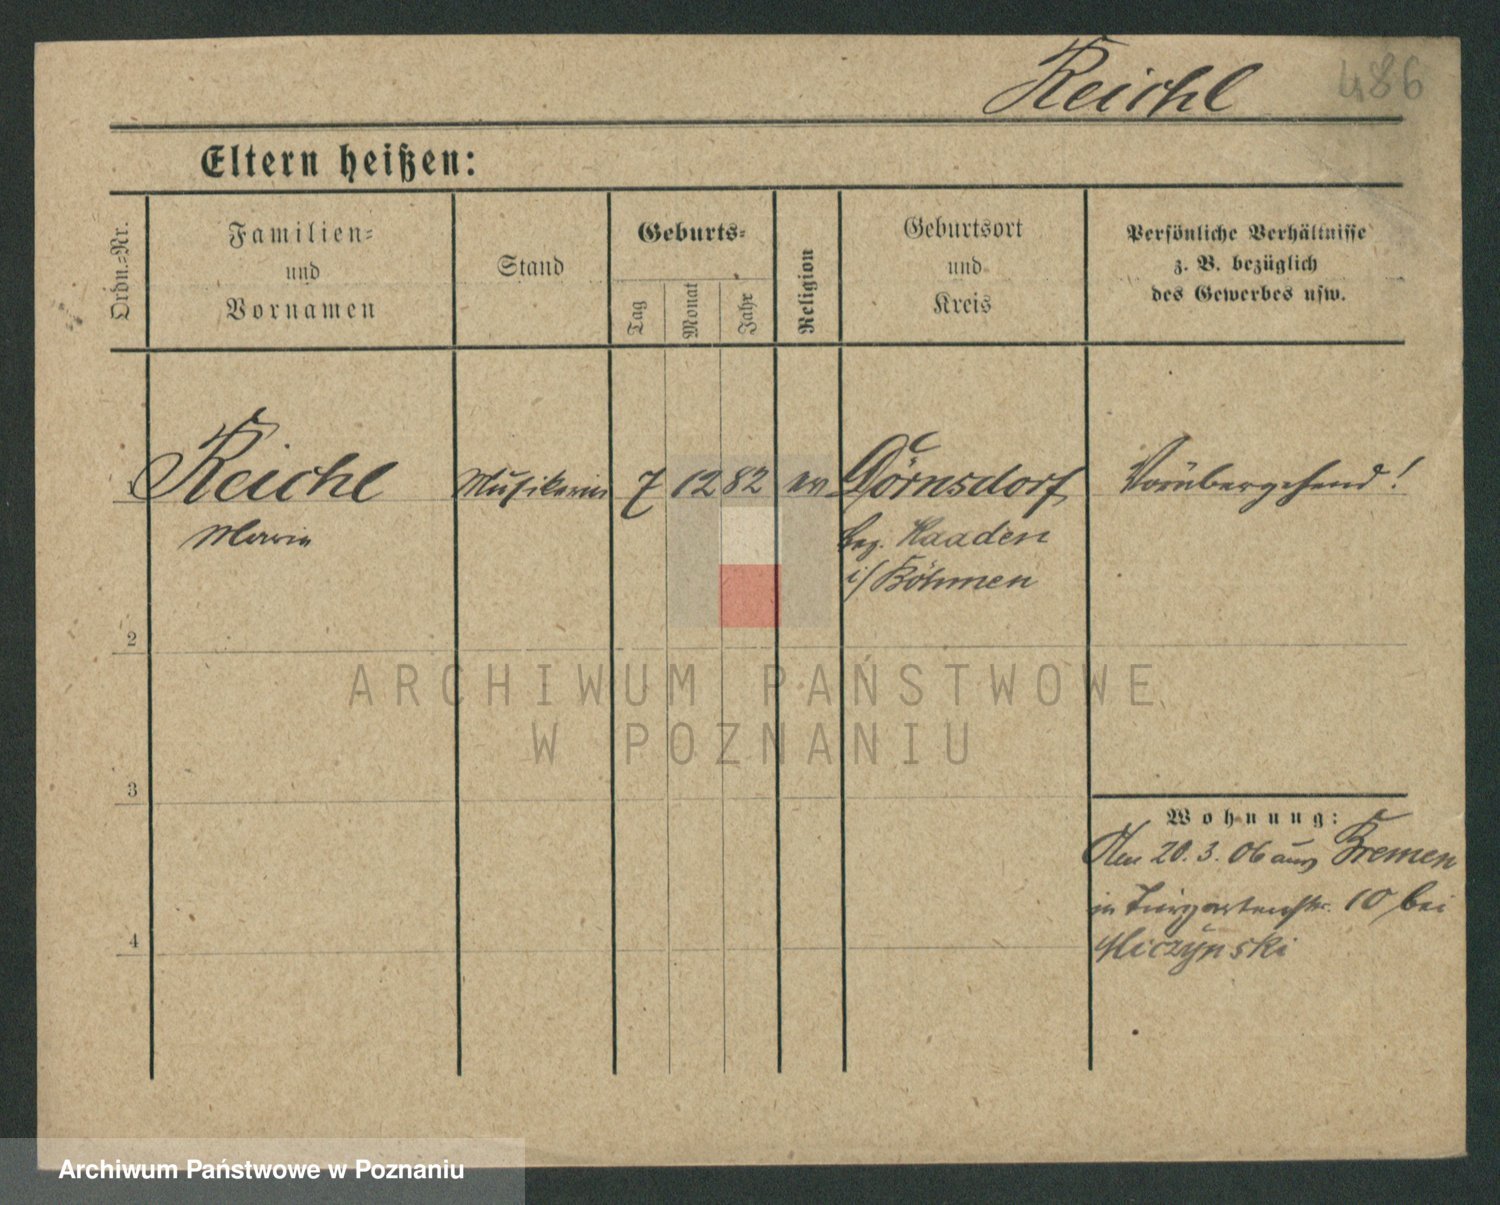 Reichl
486
Eltern heißen:
Ordn.-Nr.
Familien-
und
Vornamen
Stand
Geburts-
Tag
Monat
Jahr
Religion
Geburtsort
und
Kreis
Persönliche Verhältnisse
z. B. bezüglich
des Gewerbes usw.
Reichl Musikerin 7 12 82 ev Dörnsdorf Vorübergehend!
Marie bez. Kaaden
i/ Böhmen
2
ARCHIWUM PAŃSTWOWE
W POZNANIU
3
Wohnung:
Den 20. 3. 06 aus Bremen
in Tiergartenstr. 10 bei
4
Archiwum Państwowe w Poznaniu